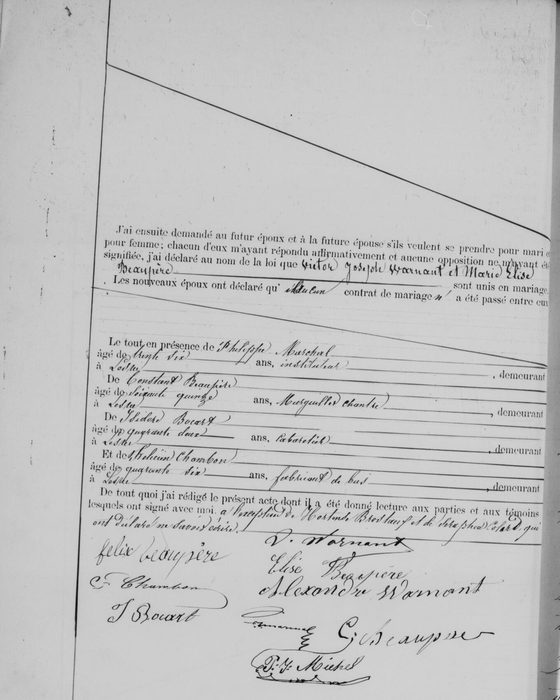 J'ai ensuite demandé au futur époux et à la future épouse s'ils veulent se prendre pour mari e
pour femme; chacun d'eux m'ayant répondu affirmativement et aucune opposition ne m'ayant été
signifiée, j'ai déclaré au nom de la loi que Victor Joseph Warnant et Marie Elise
Beaupère sont unis en mariage.
Les nouveaux époux ont déclaré qu' Aucun contrat de mariage n' a été passé entre eux
Le tout en présence de Philippe Marchal
âgé de trente six ans, instituteur, demeurant
à
De Constant Beaupère
âgé de soixante quinze ans, Marguiller chantre, demeurant
à
De Isidore Bocart
âgé de quarante deux ans, Cabaretier, demeurant
à
Et de Chambon
âgé de quarante six ans, fabricant de bas, demeurant
à
De tout quoi j'ai rédigé le présent acte dont il a été donné lecture aux parties et aux témoins
lesquels ont signé avec moi. à l'exception de Hortense et de qui
ont déclaré ne savoir écrire
V. Warnant
felix beaupère
Elise Beaupère
Alexandre Warnant
C. Chambon
I Bocart
C. Beaupère
P. J. Michel